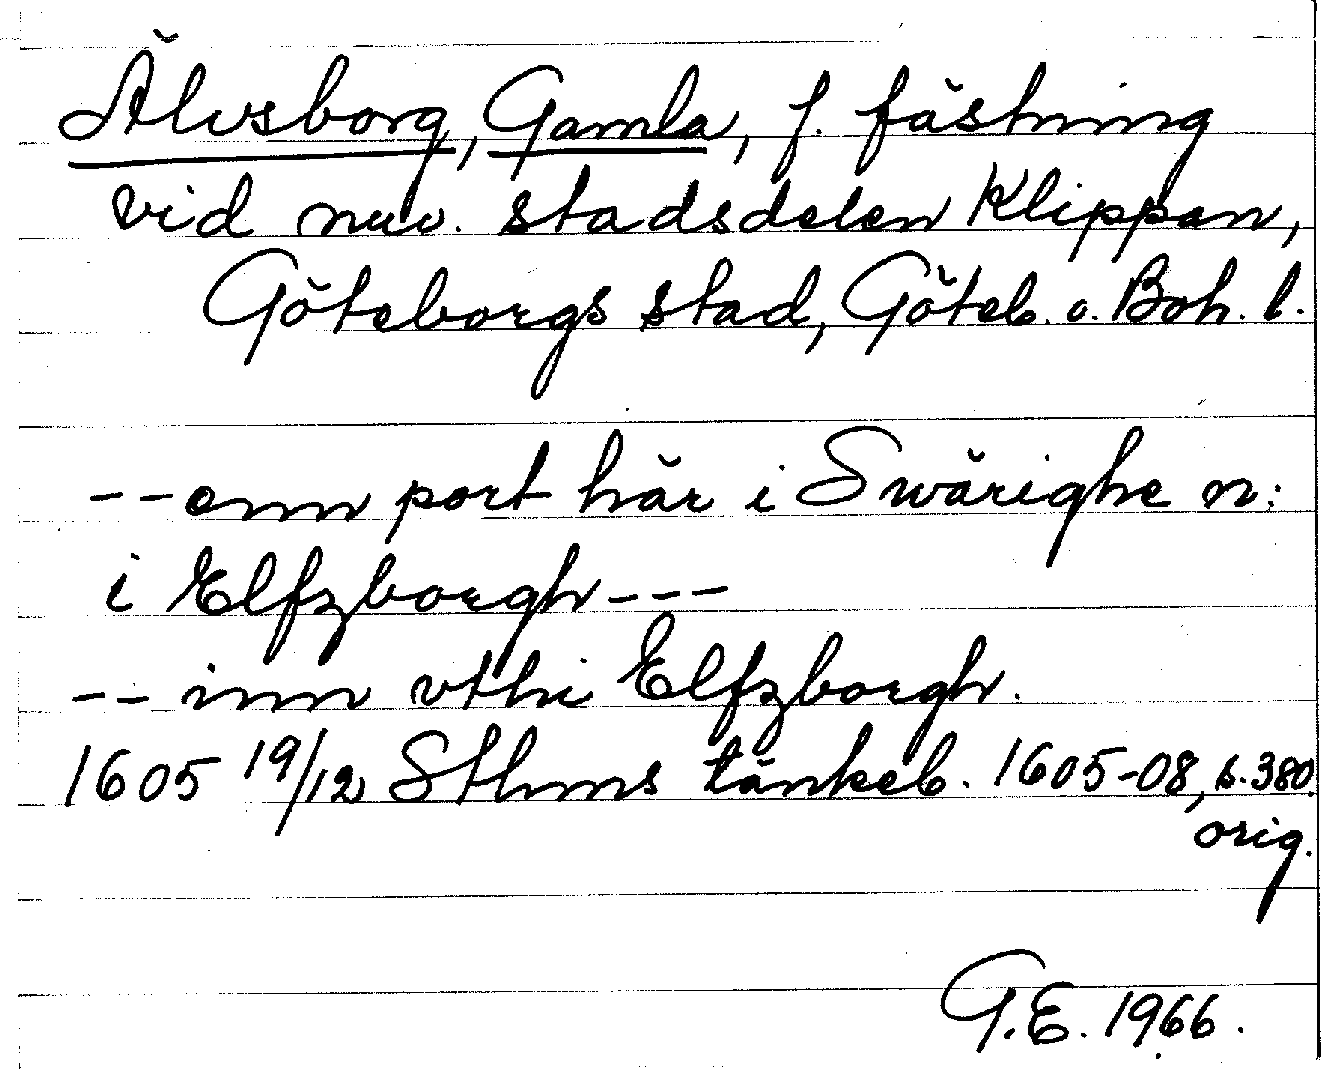 Älvsborg, Gamla, f. fästning
vid nuv. stadsdelen Klippan,
Göteborgs stad, Göteb. o. Boh. l.
--enn port här i Swärighe n:
i Elfzborgh---
-- inn vthi Elfzborgh.
1605 19/12 Sthms tänkeb. 1605-08, s. 380.
orig.
G.E. 1966.